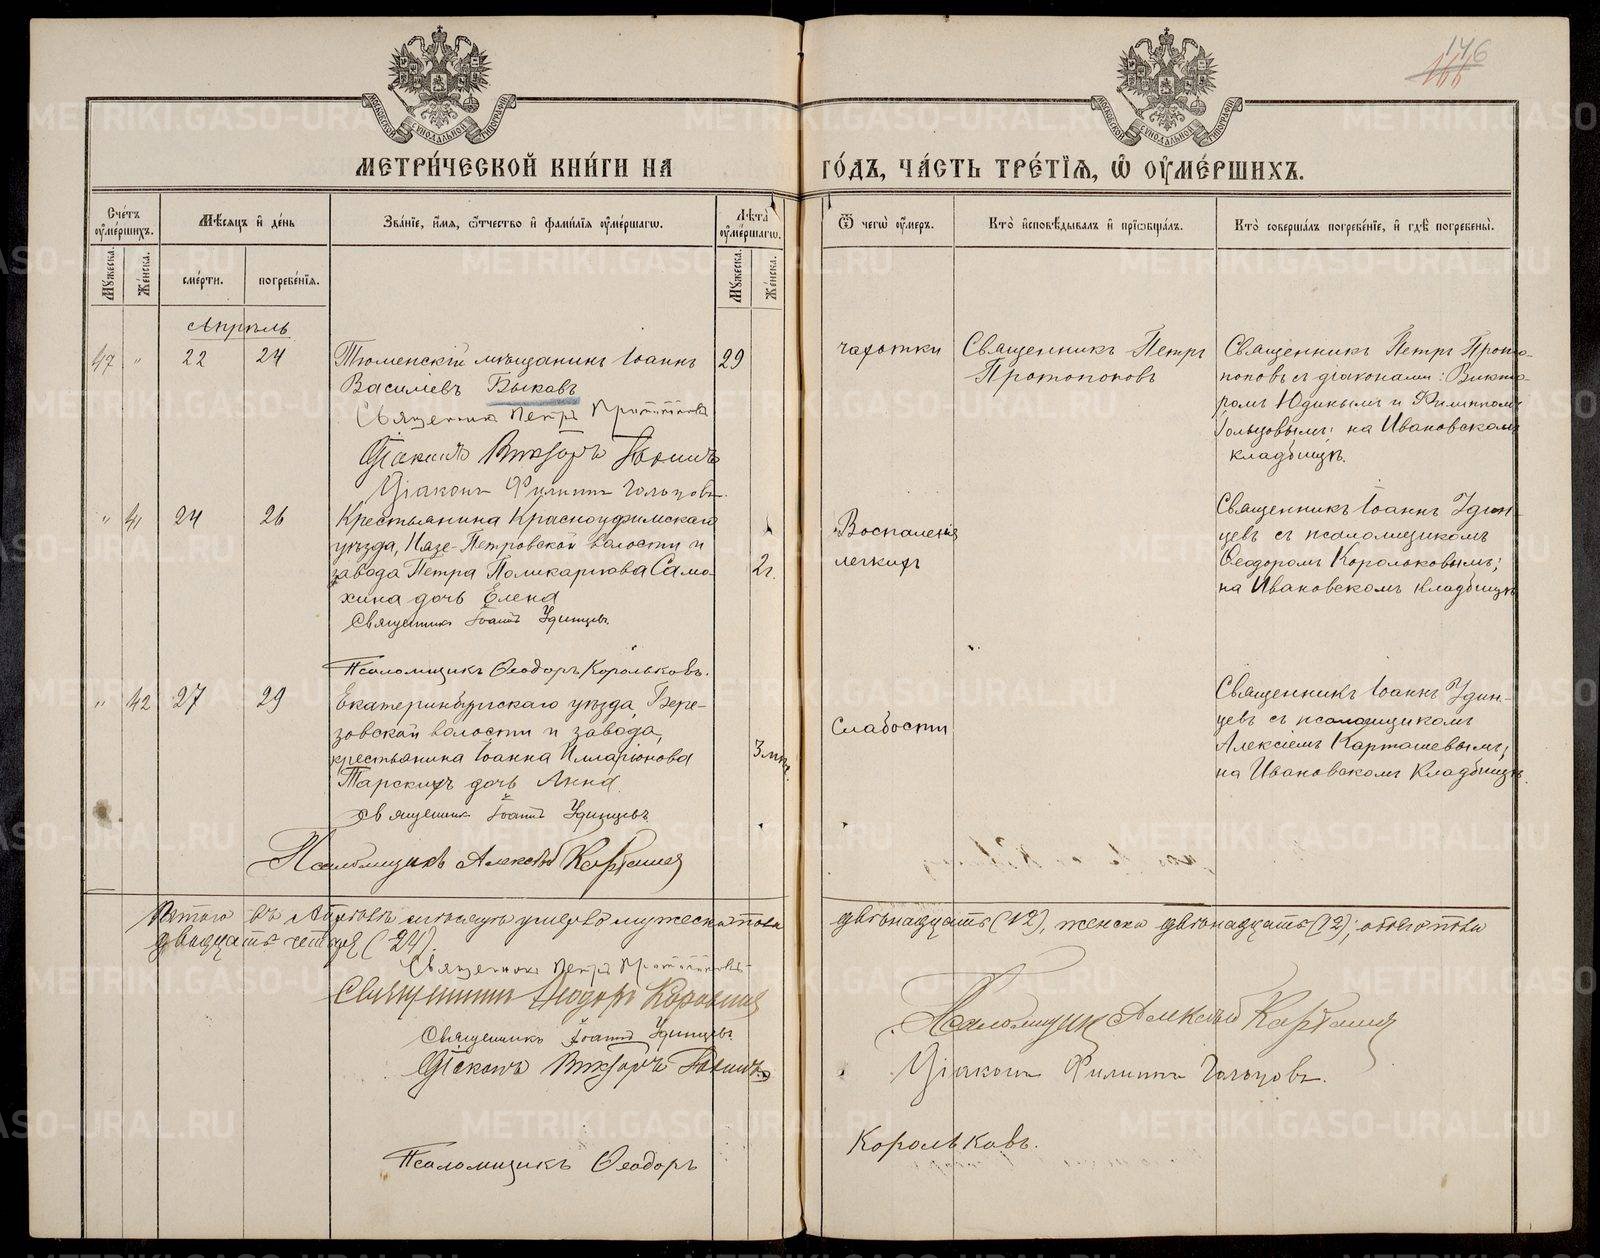 176
166
МЕТРИ́ЧЕСКОЙ КНИ́ГИ НА ГО́ДЪ, ЧА́СТЬ ТРЕ́ТЇѦ, Ѿ ОУ҆МЕ́РШИХЪ.
Сче́тъ оу҆ме́ршихъ.
Мѣ́сяцъ и҆ де́нь
Зва́нїе, и҆́мя, ѻ҆́тчество и҆ фами́лїя оу҆ме́ршагѡ.
Лѣ́та оу҆ме́ршагѡ.
Ѿ чегѡ̀ оу҆́меръ.
Кто̀ и҆сповѣ́дывалъ и҆ прїѡбща́лъ.
Кто̀ соверша́лъ погребе́нїе, и҆ гдѣ̀ погребены̀.
Мꙋ́жеска.
Же́нска.
сме́рти.
погребе́нїя.
Мꙋ́жеска.
Же́нска.
Апрѣль
47 " 22 24 Тюменскій мѣщанинъ Іоаннъ 29
Василевъ Быковъ
Священникъ Петръ Протопоповъ
Діаконъ Викторъ
Діаконъ Филиппъ Гольцовъ.
чахотки
Священникъ Петръ
Протопоповъ
Священникъ Петръ Прото-
поповъ съ діаконами: Викто-
ромъ Юдинымъ и Филиппомъ
Гольцовымъ; на Ивановскомъ
кладбищѣ.
" 41 24 26 Крестьянина Красноуфимскаго
уѣзда, Нязе-Петровской волости и
завода Петра Поликарпова Само- 2г.
хина дочь Елена
Священникъ Іоаннъ Удинцевъ.
Псаломщикъ Ѳеодоръ Корольковъ.
Воспаленія
легкихъ
Священникъ Іоаннъ Удин-
цевъ съ псаломщикомъ
Ѳеодоромъ Корольковымъ;
на Ивановскомъ кладбищѣ
" 42 27 29 Екатеринбургскаго уѣзда, Бере-
зовской волости и завода,
крестьянина Іоанна Илларіонова 3 мѣс.
Тарскихъ дочь Анна.
Священникъ Іоаннъ Удинцевъ.
Псаломщикъ Алексѣй Карташевъ
Слабости
Священникъ Іоаннъ Удин-
цевъ съ псаломщикомъ
Алексіемъ Карташевымъ;
на Ивановскомъ кладбищѣ.
Итого въ Апрѣлѣ мѣсяцѣ умерло мужеска пола двѣнадцать (12), женска двѣнадцать (12); обоего пола
двадцать четыре (24).
Священникъ Петръ Протопоповъ
Священникъ Ѳеодоръ
Священникъ Іоаннъ Удинцевъ.
Діаконъ Викторъ
Псаломщикъ Алексѣй Карташевъ
Діаконъ Филиппъ Гольцовъ.
Псаломщикъ Ѳеодоръ Корольковъ.
METRIKI.GASO-URAL.RU